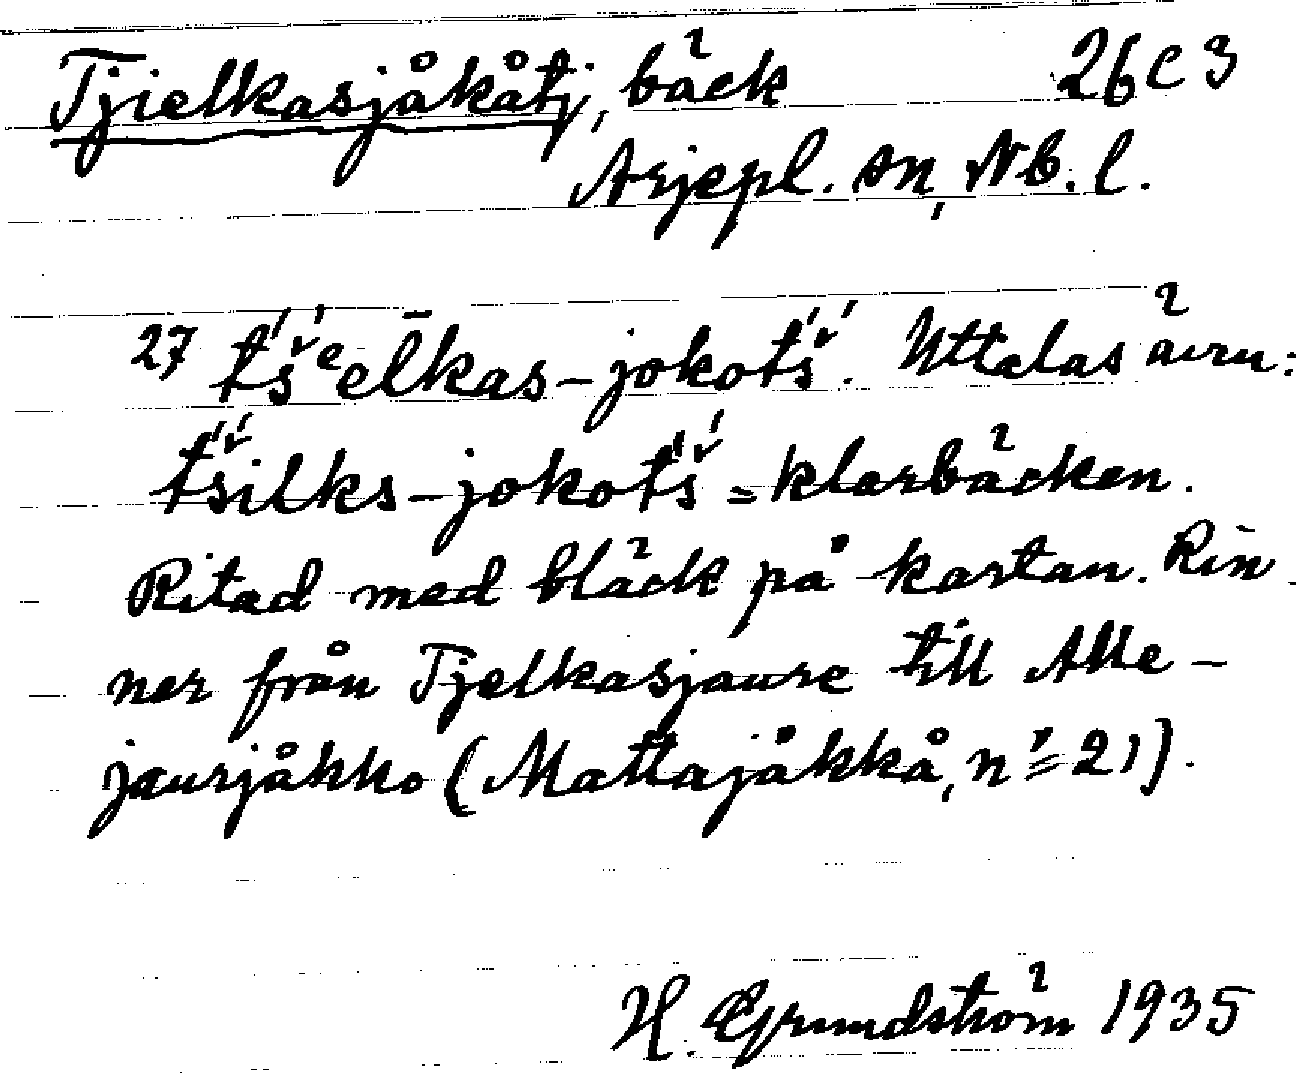 Tjielkasjåkåtj, bäck 26 C 3
Arjepl. sn, Nb. l.
27 t́š́ᵉēlkas-jokot́š́. Uttalas även:
t́š́ilks-jokot́š́ = klarbäcken.
Ritad med bläck på kartan. Rin-
ner från Tjelkasjaure till Alle-
jaurjåkko (Mattajåkkå, nº 21).
H. Grundström 1935